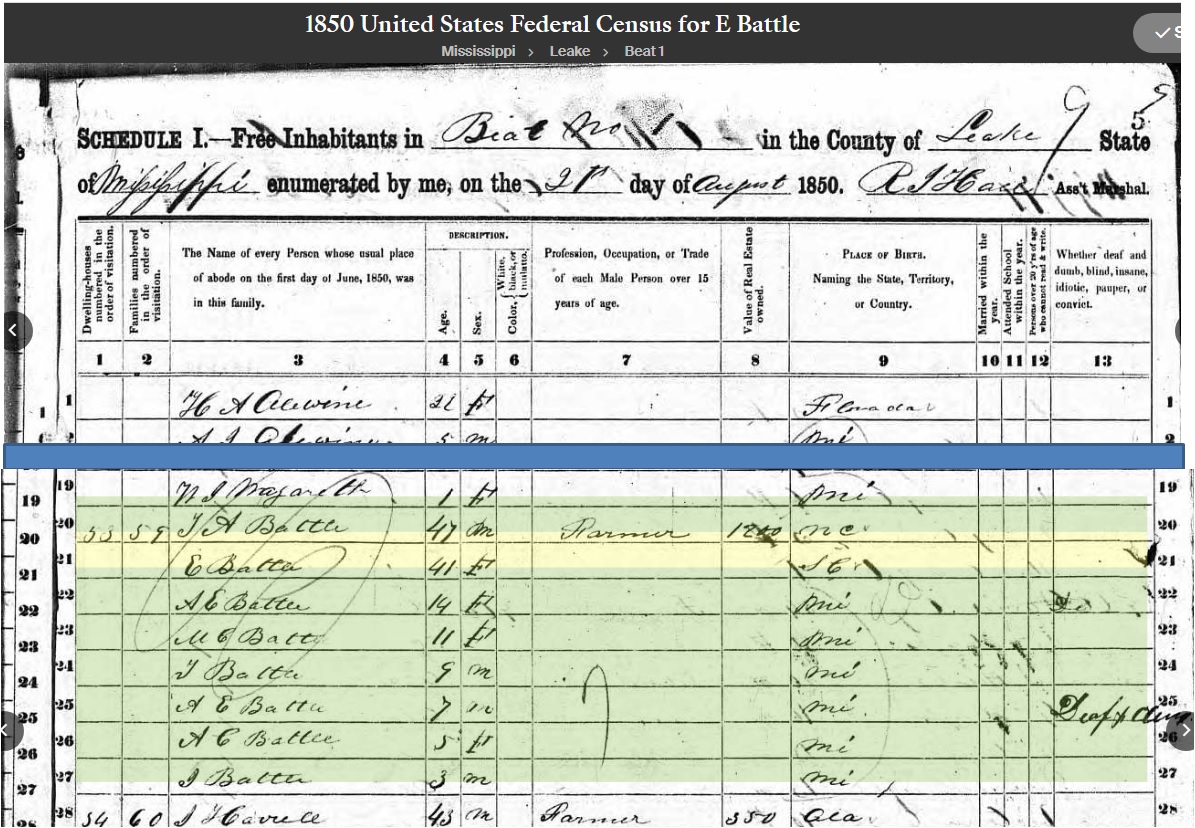 1850 United States Federal Census for E Battle
Mississippi > Leake > Beat 1
5
SCHEDULE I.—Free Inhabitants in Beat No 1 in the County of Leake State
of Mississippi enumerated by me, on the day of August 1850. Ass't Marshal.
Dwelling-houses numbered in the order of visitation.
Families numbered in the order of visitation.
The Name of every Person whose usual place of abode on the first day of June, 1850, was in this family.
DESCRIPTION.
Age.
Sex.
Color, White, black, or mulatto.
Profession, Occupation, or Trade of each Male Person over 15 years of age.
Value of Real Estate owned.
PLACE OF BIRTH. Naming the State, Territory, or Country.
Married within the year.
Attended School within the year.
Persons over 20 y'rs of age who cannot read & write.
Whether deaf and dumb, blind, insane, idiotic, pauper, or convict.
1 2 3 4 5 6 7 8 9 10 11 12 13
1 1 H A Alewine f 1
2 A J m Mi 2
19 19 1 f Mi 19
20 20 59 J A Battle 47 m Farmer NC 20
21 21 E Battle 41 f SC 21
22 22 A E Battle 14 f Mi 22
23 23 M C Battle 11 f Mi 23
24 24 J Battle 9 m Mi 24
25 25 A E Battle 7 m Mi Deaf & 25
26 26 A C Battle 5 f Mi 26
27 27 J Battle 3 m Mi 27
28 28 54 60 43 m Farmer 350 Ala 28